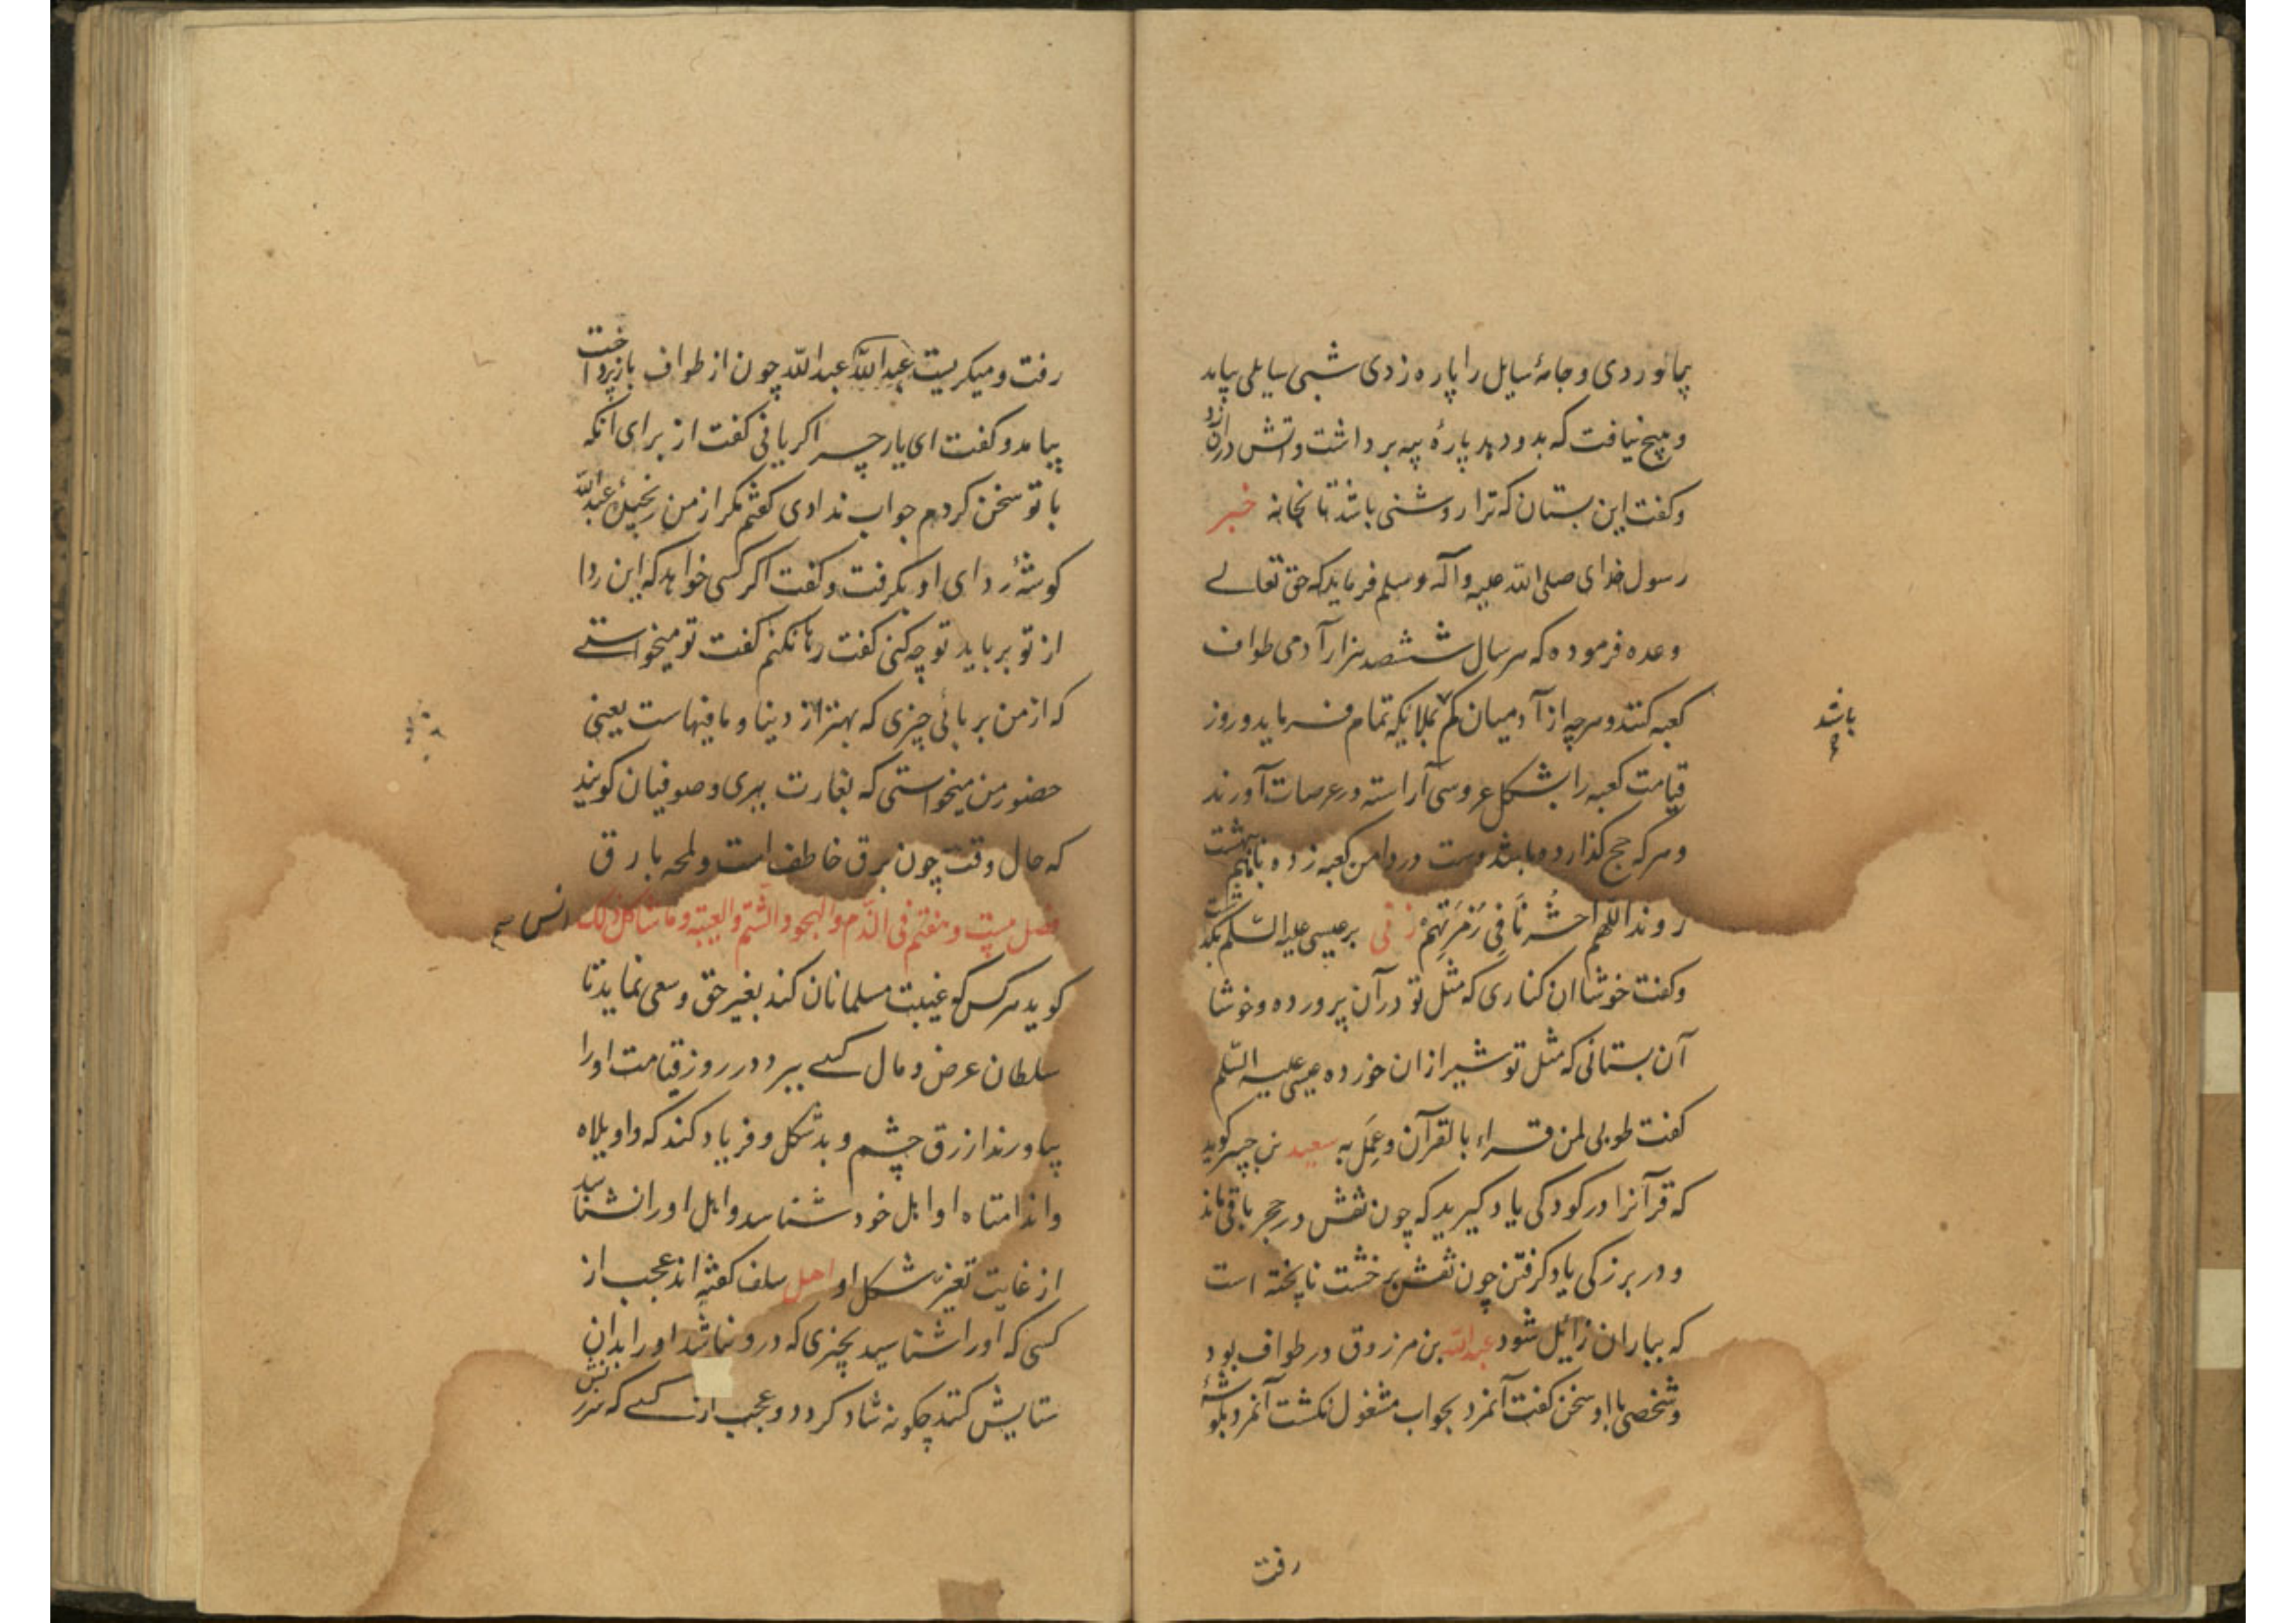 پیمانوردی و جامهٔ سایل را پاره زدی شبی سایلی بیامد
و هیچ نیافت که بدو دهد پارهٔ پیه برداشت و آتش دران زد
و کفت این بستان که ترا روشنی باشد تا بخانه خبر
رسول خدای صلی الله علیه وآله وسلم فرماید که حق تعالے
وعده فرموده که هر سال ششصد هزار آدمی طواف
کعبه کنند و هرچه از آدمیان کم بملایکه تمام فرماید و روز
باشد
قیامت کعبه را بشکل عروسی آراسته در عرصات آورند
و هرکه حج کذارده باشد دست در دامن کعبه زده تا ببهشت
روند اللهم احشرنا فی زمرتهم زنی بر عیسی علیه السلم بکذشت
و کفت خوشا ان کناری که مثل تو در آن پرورده و خوشا
آن بستانی که مثل تو شیر ازان خورده عیسی علیه السلم
کفت طوبی لمن قراء بالقرآن وعمل به سعید بن جبیر کوید
که قرآنرا در کودکی یاد کیرید که چون نقش در حجر باقی ماند
و در بزرکی یاد کرفتن چون نقش بر خشت ناپخته است
که بباران زائل شود عبدالله بن مرزوق در طواف بود
و شخصی با او سخن کفت آنمرد بجواب مشغول نکشت آنمرد بکوشهٔ
رفت
رفت و میکریست عبدالله عبدالله چون از طواف بازپرداخت
بیامد و کفت ای یار چرا کریانی کفت از برای آنکه
با تو سخن کردم جواب ندادی کفتم مکر از من رنجیدهٔ عبدالله
کوشهٔ ردای او بکرفت و کفت اکر کسی خواهد که این ردا
از تو برباید تو چه کنی کفت رها نکنم کفت تو میخواستے
که از من بربائی چیزی که بهتر از دنیا و مافیهاست یعنی
حضور من میخواستی که بغارت ببری و صوفیان کویند
که حال وقت چون برق خاطف است و لمحه بارق
فصل بیست و هفتم فی الذم والهجو والشتم والغیبة وما شاکل ذلک انس
کوید هرکس کو غیبت مسلمانان کند بغیر حق و سعی نماید تا
سلطان عرض و مال کسے ببرد در روز قیامت اورا
بیاورند ازرق چشم و بدشکل و فریاد کند که واویلاه
واندامتاه او اهل خود شناسد و اهل او را نشناسد
از غایت تغیر شکل او اهل سلف کفته اند عجب از
کسی که اورا شناسید بچیزی که درو نباشد او را بدان
ستایش کنند چکونه شاد کردد و عجب از کسے که سرزنش